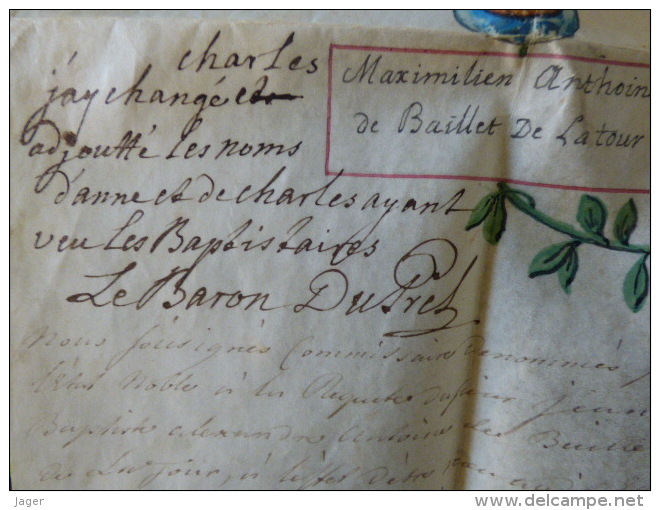 charles
j'ay changé et
adjoutté les noms
d'anne et de charles ayant
veu les Baptistaires
Le Baron DuPrel
Maximilien Anthoin
de Baillet De Latour
Nous soüsignés Commissaire denommés
l'état Noble à la Requete du sieur jean
Baptiste alexandre Antoine de Baille
de La Tour, à l'effet d'être
jager
delcampe.net